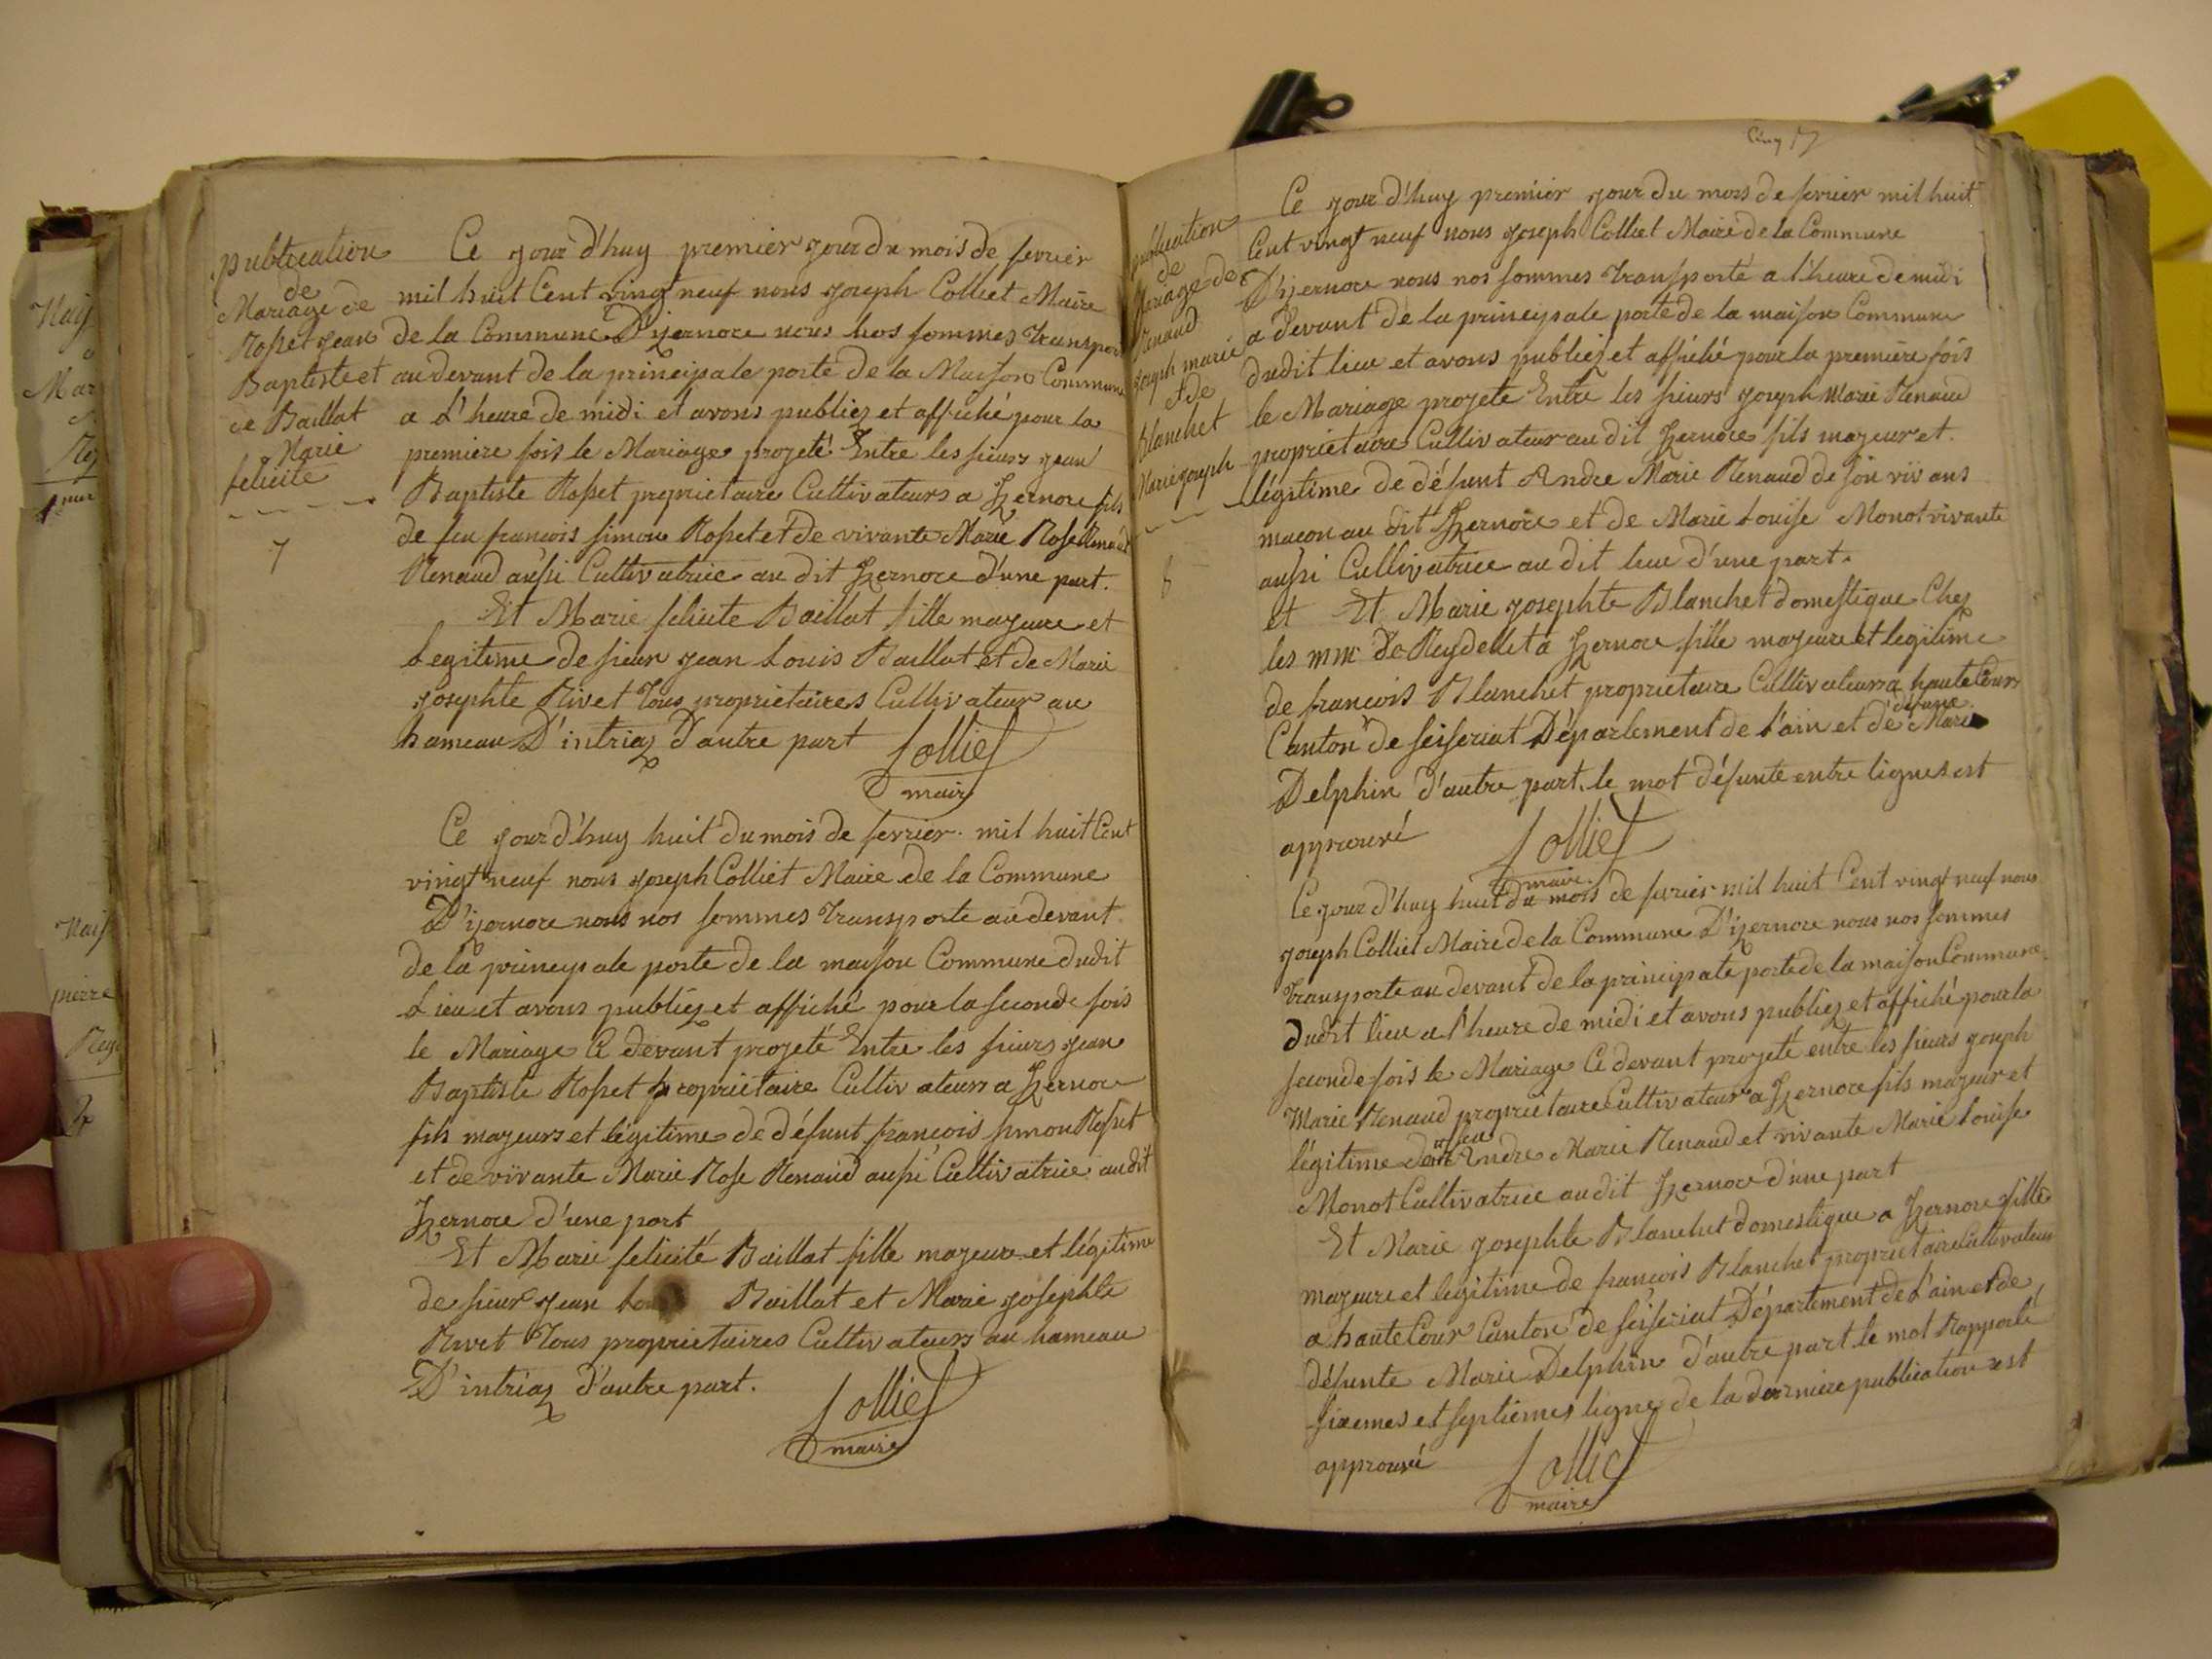 publication
de
Mariage de
Rosset jean
Baptiste et
de Baillat
Marie
felicité
7
Ce jour d'huy premier jour du mois de fevrier
mil huit Cent vingt neuf nous joseph Colliet Maire
de la Commune D'izernore nous nos sommes transporté
au devant de la principale porte de la Maison Commune
a L'heure de midi et avons publiez et affiché pour la
premiere fois le Mariage projeté Entre les sieurs jean
Baptiste Rosset proprietaire Cultivateurs a Izernore fils
de feu francois simon Rosset et de vivante Marie Rose Renaud
Renaud aussi Cultivatrice au dit Izernore d'une part.
Et Marie felicite Baillat fille majeure et
Legitime de sieur jean Louis Baillat et de Marie
josephte Rivet Tous proprietaires Cultivateur au
hameau D'intriaz D'autre part
Colliet
maire
Ce jour d'huy huit du mois de fevrier mil huit Cent
vingt neuf nous joseph Colliet Maire de la Commune
D'izernore nous nos sommes transporte au devant
de la principale porte de la maison Commune dudit
Lieu et avons publiez et affiché pour la seconde fois
le Mariage Ce devant projeté Entre les sieurs jean
Baptiste Rosset proprietaire Cultivateurs a Izernore
fils majeurs et légitime de défunt francois simon Rosset
et de vivante Marie Rose Renaud aussi Cultivatrice audit
Izernore d'une part
Et Marie felicité Baillat fille majeure et légitime
de sieur jean Louis Baillat et Marie josephte
Rivet Tous proprietaires Cultivateurs au hameau
D'intriaz d'autre part.
Colliet
maire
publication
de
Mariage de
Renaud
joseph marie
et de
Blanchet
Marie joseph
8
Ce jour d'huy premier jour du mois de fevrier mil huit
Cent vingt neuf nous joseph Colliet Maire de la Commune
D'izernore nous nos sommes transporté a l'heure de midi
a devant de la principale porte de la maison Commune
dudit lieu et avons publiez et affiché pour la premiere fois
le Mariage projete Entre les sieurs joseph Marie Renaud
proprietaire Cultivateur au dit Izernore fils majeur et
légitime de défunt Andre Marie Renaud de son vivans
macon au dit Izernore et de Marie Louise Monot vivante
aussi Cultivatrice au dit lieu d'une part.
et Et Marie josephte Blanchet domestique Chez
les mm De Reydellet a Izernore fille majeure et legitime
de francois Blanchet proprietaire Cultivateurs a haute Cour
Canton de seiseriat Département de L'ain et de défunte Marie
Delphin d'autre part. le mot défunte entre lignes est
approuvé
Colliet
maire
Ce jour d'huy huit du mois de fevrier mil huit Cent vingt neuf nous
joseph Colliet Maire de la Commune D'izernore nous nos sommes
transporte au devant de la principale porte de la maison Commune
dudit lieu a l'heure de midi et avons publiez et affiché pour la
seconde fois le Mariage Ce devant projeté entre les sieurs joseph
Marie Renaud proprietaire Cultivateur a Izernore fils majeur et
légitime de feu Andre Marie Renaud et vivante Marie Louise
Monot Cultivatrice audit Izernore d'une part
Et Marie josephte Blanchet domestique a Izernore fille
majeure et legitime de francois Blanchet proprietaire Cultivateur
a haute Cour Canton de seiseriat Département de L'ain et de
défunte Marie Delphin d'autre part le mot Rapporté
sixemes et septiemes ligne de la derniere publication est
approuvé
Colliet
maire